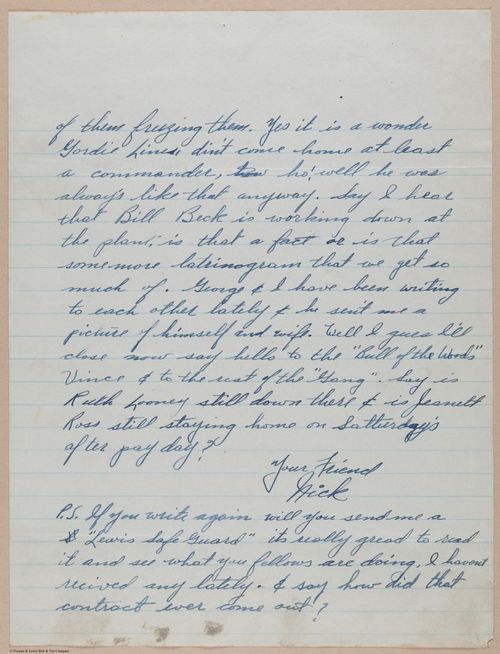 of them freizing them. Yes it is a wonder
Gordie Lines, din't come home at least
a commander, ho! well he was
always like that anyway. Say I hear
that Bill Beck is working down at
the plant, is that a fact or is that
somemore latrinogram that we get so
much of. George & I have been writing
to each other lately & he sent me a
picture of himself and wife. Well I guess I'll
close now say hello to the "Bull of the Woods"
Vince & to the rest of the "Gang". Say is
Ruth Looney still down there & is Jeanett
Ross still staying home on Satturday's
after pay day?
Your Friend
Nick
P.S. If you write again will you send me a
"Lewis Safe Guard" its really gread to read
it and see what you fellows are doing, I havent
recived any lately. & say how did that
contract ever come out?